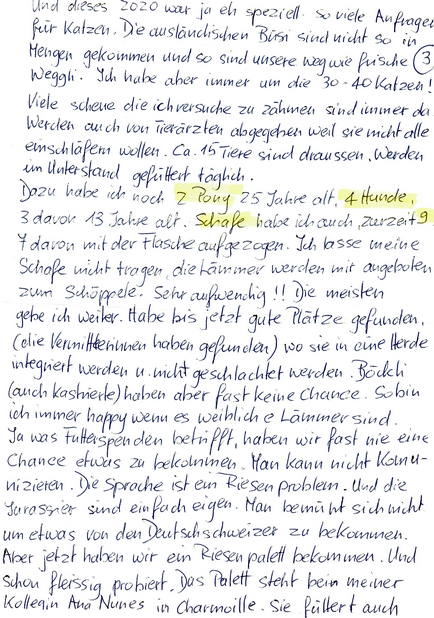 Und dieses 2020 war ja eh speziell. So viele Anfragen
für Katzen. Die ausländischen Büsi sind nicht so in
Mengen gekommen und so sind unsere weg wie frische ③
Weggli. Ich habe aber immer um die 30-40 Katzen!
Viele scheue die ich versuche zu zähmen sind immer da
Werden auch von Tierärzten abgegeben weil sie nicht alle
einschläfern wollen. Ca. 15 Tiere sind draussen. Werden
im Unterstand gefüttert täglich.
Dazu habe ich noch 2 Pony 25 Jahre alt, 4 Hunde,
3 davon 13 Jahre alt. Schafe habe ich auch, zurzeit 9
7 davon mit der Flasche aufgezogen. Ich lasse meine
Schafe nicht tragen, die Lämmer werden mir angeboten
zum Schöppele. Sehr aufwendig!! Die meisten
gebe ich weiter. Habe bis jetzt gute Plätze gefunden,
(die Vermittlerinnen haben gefunden) wo sie in eine Herde
integriert werden u. nicht geschlachtet werden. Böckli
(auch kastrierte) haben aber fast keine Chance. So bin
ich immer happy wenn es weibliche Lämmer sind.
Ja was Futterspenden betrifft, haben wir fast nie eine
Chance etwas zu bekommen. Man kann nicht Komu-
nizieren. Die Sprache ist ein Riesen problem. Und die
Jurassier sind einfach eigen. Man bemüht sich nicht
um etwas von den Deutschschweizer zu bekommen.
Aber jetzt haben wir ein Riesen palett bekommen. Und
schon fleissig probiert. Das Palett steht beim meiner
Kollegin Ana Nunes in Charmoille. Sie füttert auch